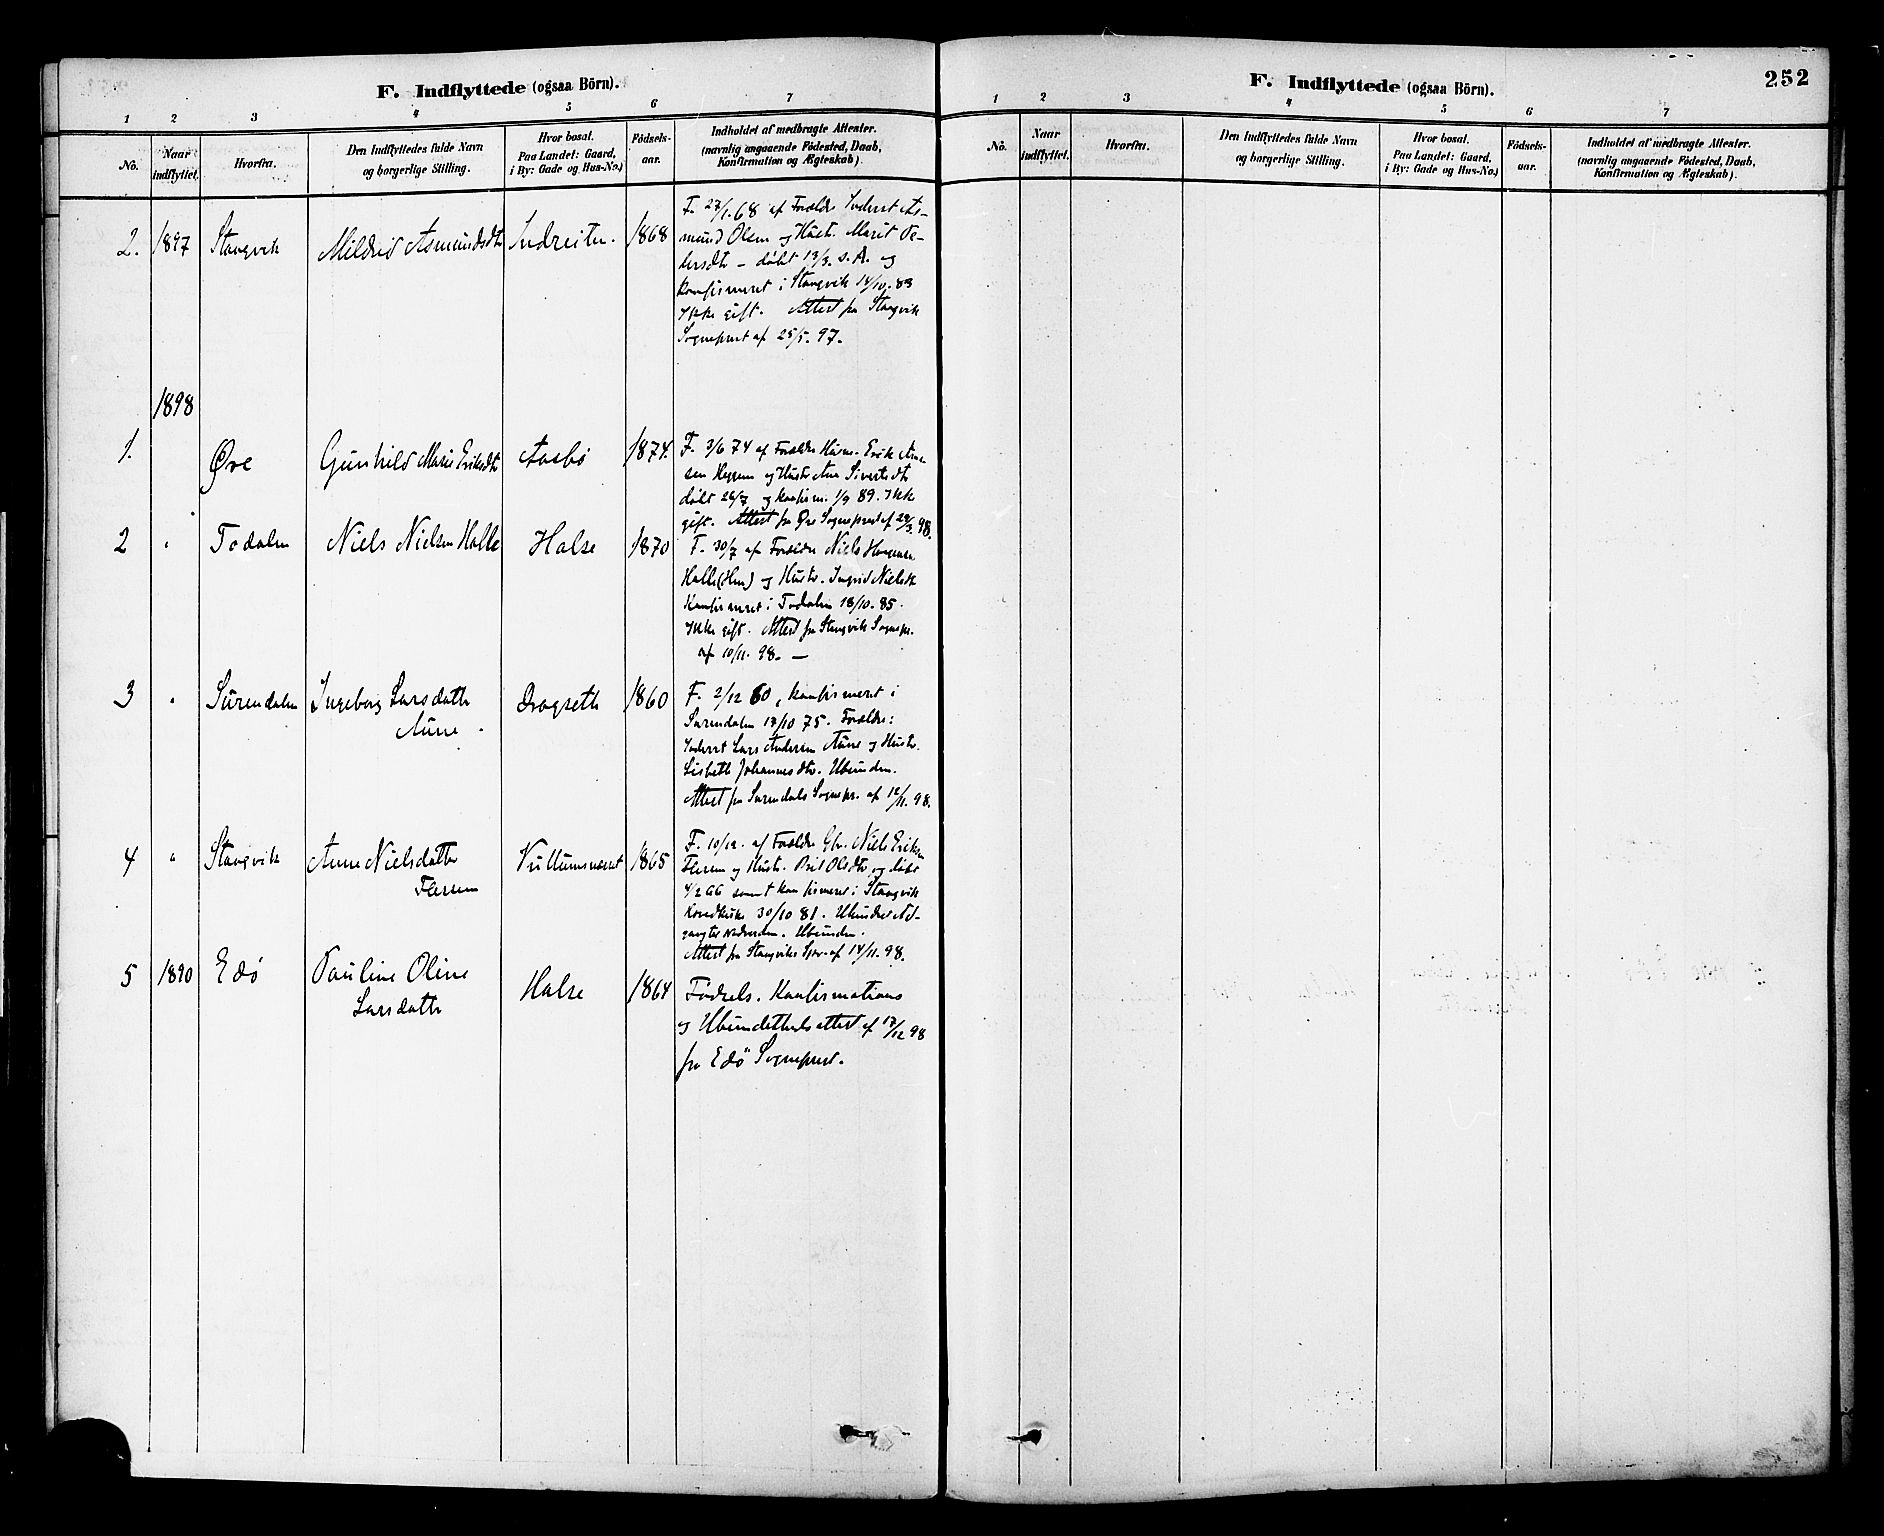 F. Indflyttede (ogsaa Börn).
1 2 3 4 5 6 7
No. Naar indflyttet. Hvorfra. Den Indflyttedes fulde Navn og borgerlige Stilling. Hvor bosat. Paa Landet: Gaard, i By: Gade og Hus-No.) Födsels-aar. Indholdet af medbragte Attester. (navnlig angaaende Födested, Daab, Konfirmation og Ægteskab).
2. 1897 Stangvik Mildrid Asmundsdtr 1868
F. 27/1.68 af Forældr Inderst As-
mund Olsen og Hust. Marit Pe-
dersdtr – döbt 13/3. s. A. og
konfirmeret i Stangvik 14/10.83
Ikke gift. Attest fra Stangvik
Sogneprest af 25/5.97.
1898
1. Øre Gunhild Marie Eriksdtr Aasbö 1874.
F. 3/6 74 af Forældre Erik
og Hustr Sivertsdtr
döbt 26/7 og konfirm. 1/9 89. Ikke
gift. Attest fra Øre Sogneprest af 29/3.98.
2 " Todalen Niels Nielsen Halle Halse 1870
F. 30/7 af Forældre Niels
Halle og Hustr. Ingrid Nielsdtr
Konfirmeret i Todalen 18/10.85.
Ikke gift. Attest fra Stangvik Sognepr.
af 10/11.98. —
3 " Surendalen Ingeborg Larsdatter Aune Dragseth 1860
F. 2/12 60, konfirmeret i
Surendalen 17/10 75. Forældre:
Inderst Lars Andersen Aune og Hustr.
Lisbeth Johannesdtr. Ubunden.
Attest fra Surendals Sognepr. af 12/11.98.
4 " Stangvik Anne Nielsdatter Flessum Vullumsneset 1865
F. 10/12. af Forældre Gbr. Niels Eriksen
og Hustr. Brit Olsdtr, og döbt
4/2 66 samt konfirmeret i Stangvik
30/10 81.
Ubunden.
Attest fra Stangviks af 14/11.98.
5 1890 Edö Pauline Oline Larsdatter Halse 1864
Födsels. Konfirmations
og Ubundetheds attest af 17/12 98
fra Edö Sogneprest.
F. Indflyttede (ogsaa Börn).
252
1 2 3 4 5 6 7
No. Naar indflyttet. Hvorfra. Den Indflyttedes fulde Navn og borgerlige Stilling. Hvor bosat. Paa Landet: Gaard, i By: Gade og Hus-No.) Födsels-aar. Indholdet af medbragte Attester. (navnlig angaaende Födested, Daab, Konfirmation og Ægteskab).